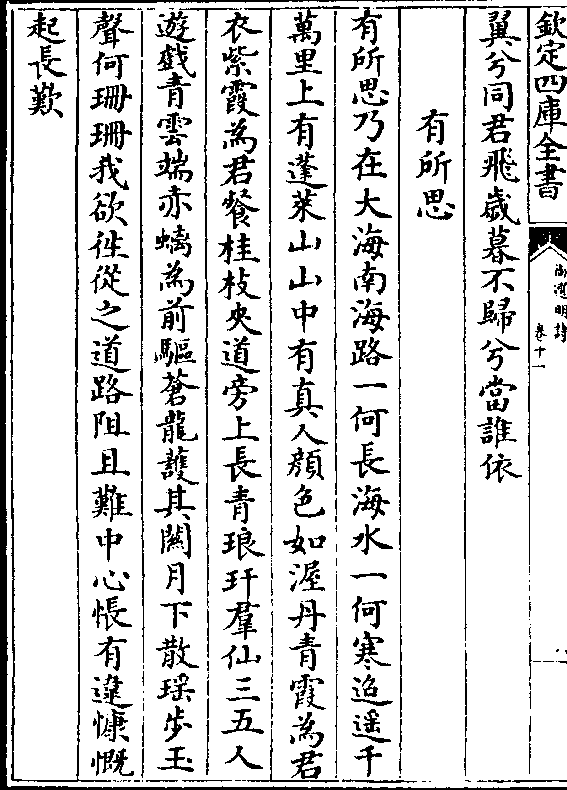 欽定四庫全書
御選明詩
卷十一
翼兮同君飛歲暮不歸兮當誰依
有所思
有所思乃在大海南海路一何長海水一何寒迢遥千
萬里上有蓬萊山山中有真人顔色如渥丹青霞為君
衣紫霞為君餐桂枝夾道旁上長青琅玕羣仙三五人
遊戲青雲端赤螭為前驅蒼龍護其闗月下散瑶步玉
聲何珊珊我欲徃從之道路阻且難中心悵有違慷慨
起長歎